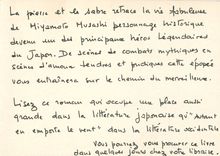 La pierre et le sabre retrace la vie fabuleuse
de Miyamoto Musashi personnage historique
devenu un des principaux héros légendaires
du Japon. De scènes de combats mythiques en
scènes d'amour tendres et pudiques cette épopée
vous entraînera sur le chemin du merveilleux.
Lisez ce roman qui occupe une place aussi
grande dans la littérature japonaise qu'"Autant
en emporte le vent" dans la littérature occidentale
vous pourrez vous procurer ce livre
dans quelques jours chez votre libraire.